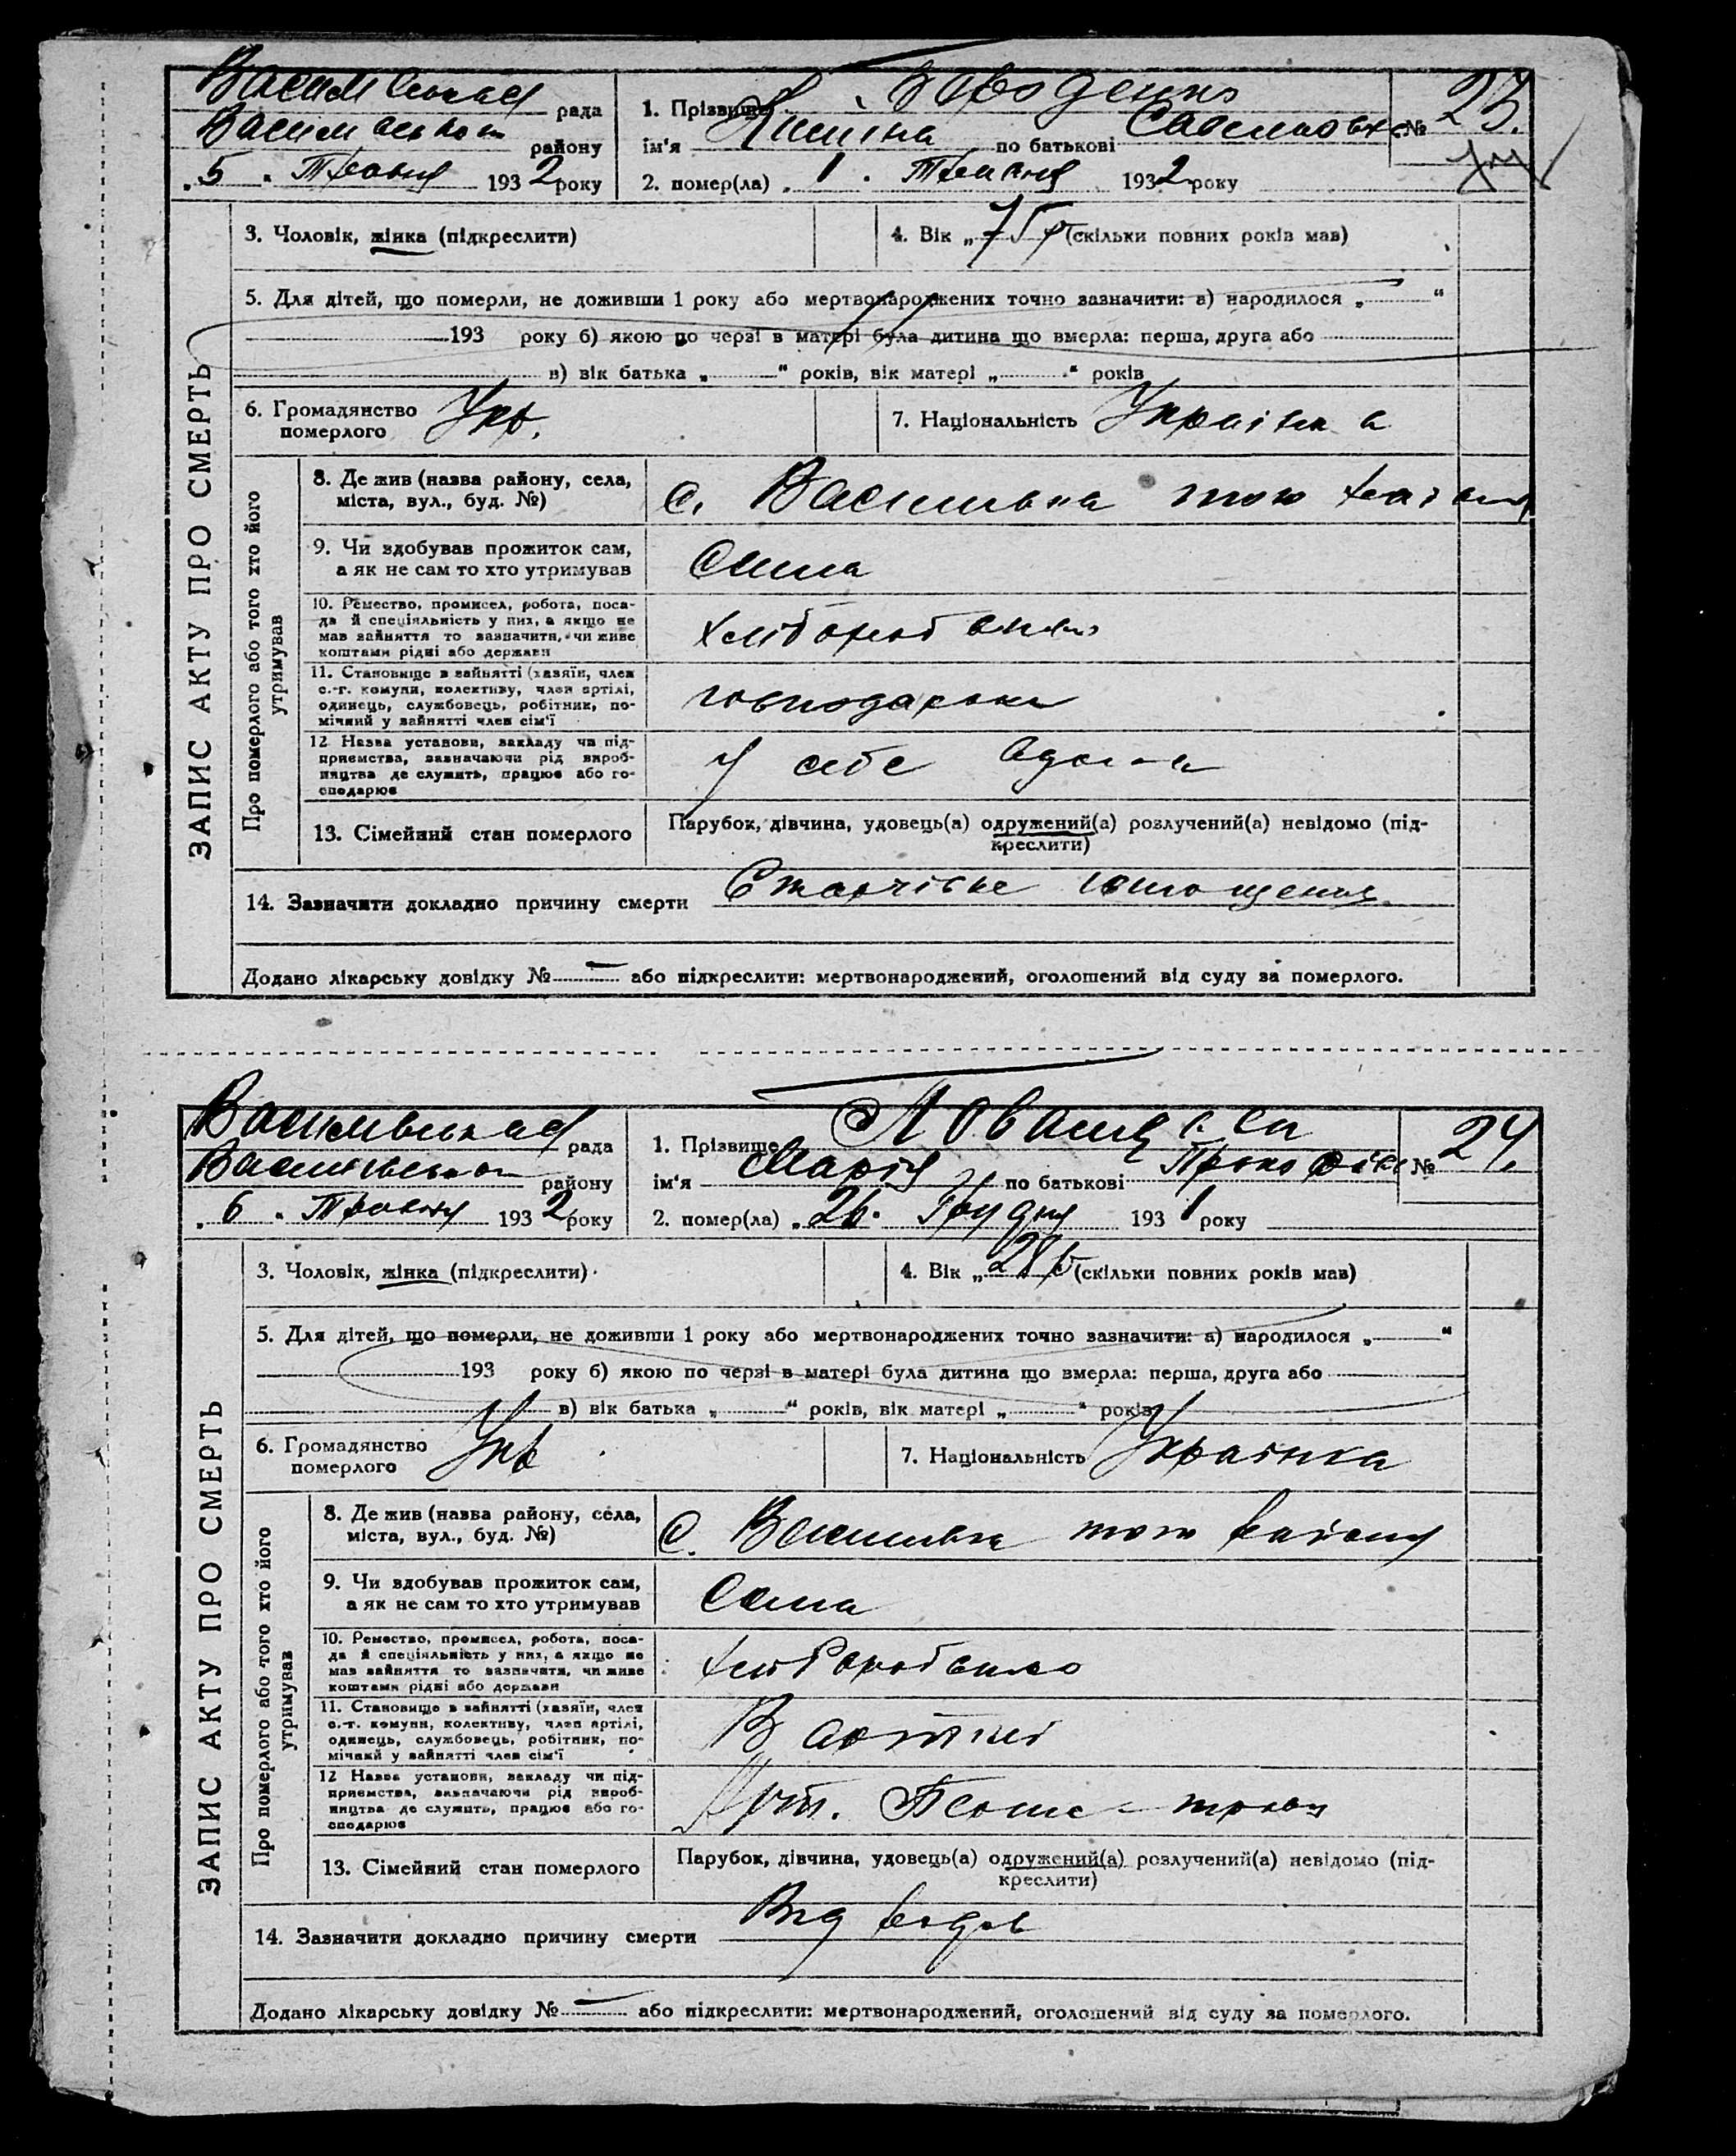 Васильвська рада
Васильвського району
„5“ Травня 1932 року
1. Прізвище
ім'я по батькові
№ 23.
2. помер(ла) „1“ Травня 1932 року
ЗАПИС АКТУ ПРО СМЕРТЬ
3. Чоловік, жінка (підкреслити)
4. Вік „75 р (скільки повних років мав)
5. Для дітей, що померли, не доживши 1 року або мертвонароджених точно зазначити: а) народилося „ “
193 року б) якою по черзі в матері була дитина що вмерла: перша, друга або
в) вік батька „ “ років, вік матері „ “ років
6. Громадянство
померлого
Укр.
7. Національність Українка
Про померлого або того хто його
утримував
8. Де жив (назва району, села,
міста, вул., буд. №)
с. Василівка того району
9. Чи здобував прожиток сам,
а як не сам то хто утримував
Сама
10. Ремество, промисел, робота, поса-
да й спеціяльність у них, а якщо не
мав зайняття то зазначити, чи живе
коштами рідні або держави
хліборобство
11. Становище в зайнятті (хазяїн, член
с.-г. комуни, колективу, член артілі,
одинець, службовець, робітник, по-
мічний у зайнятті член сім'ї
господарка
12 Назва установи, закладу чи під-
приємства, зазначаючи рід вироб-
ництва де служить, працює або го-
сподарює
У себе вдома
13. Сімейний стан померлого
Парубок, дівчина, удовець(а) одружений(а) розлучений(а) невідомо (під-
креслити)
14. Зазначити докладно причину смерти
Старчіське
Додано лікарську довідку № — або підкреслити: мертвонароджений, оголошений від суду за померлого.
Васильвська рада
Васильвського району
„6“ Травня 1932 року
1. Прізвище
ім'я Марія по батькові
№ 24.
2. помер(ла) „26“ Грудня 1931 року
ЗАПИС АКТУ ПРО СМЕРТЬ
3. Чоловік, жінка (підкреслити)
4. Вік „28 р (скільки повних років мав)
5. Для дітей, що померли, не доживши 1 року або мертвонароджених точно зазначити: а) народилося „ “
193 року б) якою по черзі в матері була дитина що вмерла: перша, друга або
в) вік батька „ “ років, вік матері „ “ років
6. Громадянство
померлого
Укр
7. Національність Українка
Про померлого або того хто його
утримував
8. Де жив (назва району, села,
міста, вул., буд. №)
С. Василівка того району
9. Чи здобував прожиток сам,
а як не сам то хто утримував
Сама
10. Ремество, промисел, робота, поса-
да й спеціяльність у них, а якщо не
мав зайняття то зазначити, чи живе
коштами рідні або держави
хліборобство
11. Становище в зайнятті (хазяїн, член
с.-г. комуни, колективу, член артілі,
одинець, службовець, робітник, по-
мічний у зайнятті член сім'ї
В артілі
12 Назва установи, закладу чи під-
приємства, зазначаючи рід вироб-
ництва де служить, працює або го-
сподарює
Арт. травня
13. Сімейний стан померлого
Парубок, дівчина, удовець(а) одружений(а) розлучений(а) невідомо (під-
креслити)
14. Зазначити докладно причину смерти
Від родов
Додано лікарську довідку № — або підкреслити: мертвонароджений, оголошений від суду за померлого.